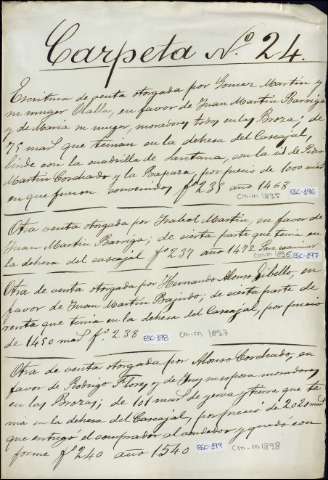 Carpeta N.º 24.
Escritura de venta otorgada por Gomez Martin y
su muger Olalla, en favor de Juan Martin Barriga
y de Maria su muger, moradores todos en las Brozas; de
75 mrs que tenian en la dehesa del Cascajal,
linde con la cuadrilla de Santana, en la de
Martin Cordiado y la Rapara, por precio de 1000 mrs
en que fueron convenidos fº 235 año 1468
ESC-896
cm-m 1895
Otra venta otorgada por Isabel Martin, en favor de
Juan Martin Barriga; de cierta parte que tenia en
la dehesa del cascajal fº 237 año 1472
1896 ESC-897
Otra de venta otorgada por Hernando Alonso, en
favor de Juan Martin; de cierta parte de
renta que tenia en la dehesa del Cascajal, por precio
de 1450 mrs fº 238
ESC-898
cm-m 1897
Otra de venta otorgada por Alonso Cordiado, en
favor de Rodrigo Flores y de su esposa moradores
en las Brozas; de 101 mrs de yerva y tierra que te
nia en la dehesa del Cascajal, por precio de 2020 mrs
que entregó el comprador al vendedor y quedó con
forme fº 240 año 1540
ESC-899
cm-m 1898